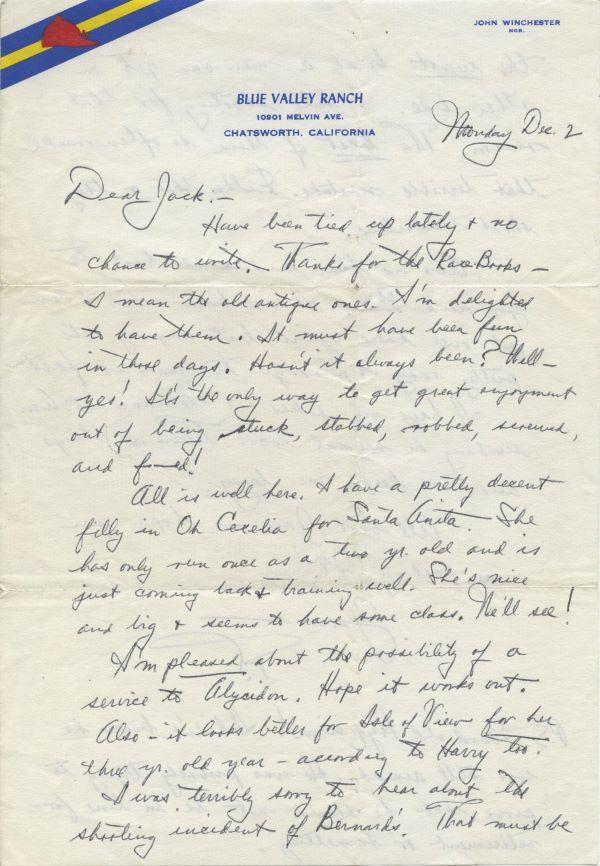 JOHN WINCHESTER
MGR.
BLUE VALLEY RANCH
10901 MELVIN AVE.
CHATSWORTH, CALIFORNIA
Monday Dec. 2
Dear Jack:-
Have been tied up lately & no
chance to write. Thanks for the Race Books -
I mean the old antique ones. I'm delighted
to have them. It must have been fun
in those days. Hasn't it always been? Well-
yes! It's the only way to get great enjoyment
out of being stuck, stabbed, robbed, screwed,
and f---ed!
All is well here. I have a pretty decent
filly in Oh Cecelia for Santa Anita. She
has only run once as a two yr. old and is
just coming back & training well. She's nice
and big & seems to have some class. We'll see!
I'm pleased about the possibility of a
service to Alycidon. Hope it works out.
Also - it looks better for Isle of View for her
three yr. old year - according to Harry too.
I was terribly sorry to hear about the
shooting incident of Bernard's. That must be